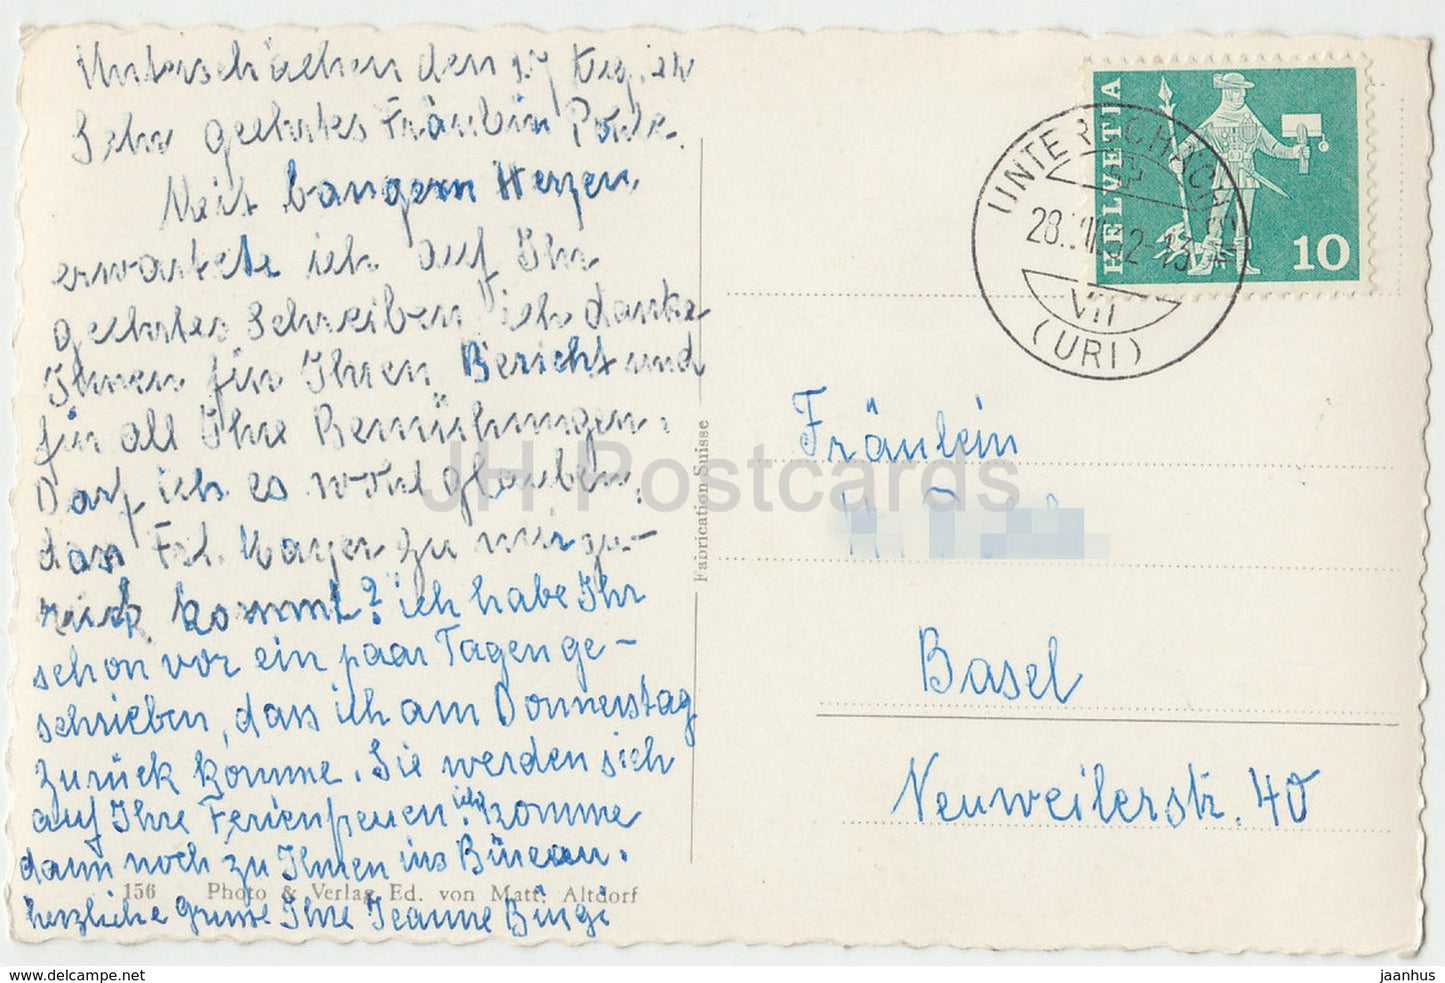 Unterschächen den 27 Aug.
Sehr geehrtes Fräulein
Mit bangem Herzen,
erwartete ich auf Ihr
geehrtes Schreiben ich danke
Ihnen für Ihren Bericht und
für all Ihre Bemühungen.
Darf ich es wohl glauben,
dass Frl. Mayer zu mir zu-
rück kommt? ich habe Ihr
schon vor ein paar Tagen ge-
schrieben, dass ich am Donnerstag
Zurück komme. Sie werden sich
auf Ihre Ferien freuen. ich komme
dann noch zu Ihnen ins Büreau.
herzliche Grüsse Ihre Jeanne
156 Photo & Verlag Ed. von Matt. Altdorf
Fabrication Suisse
HELVETIA
10
UNTERSCHÄCHEN
28.VIII.62-13
VII
(URI)
Fräulein
Basel
Neuweilerstr. 40
JH Postcards
www.delcampe.net
jaanhus